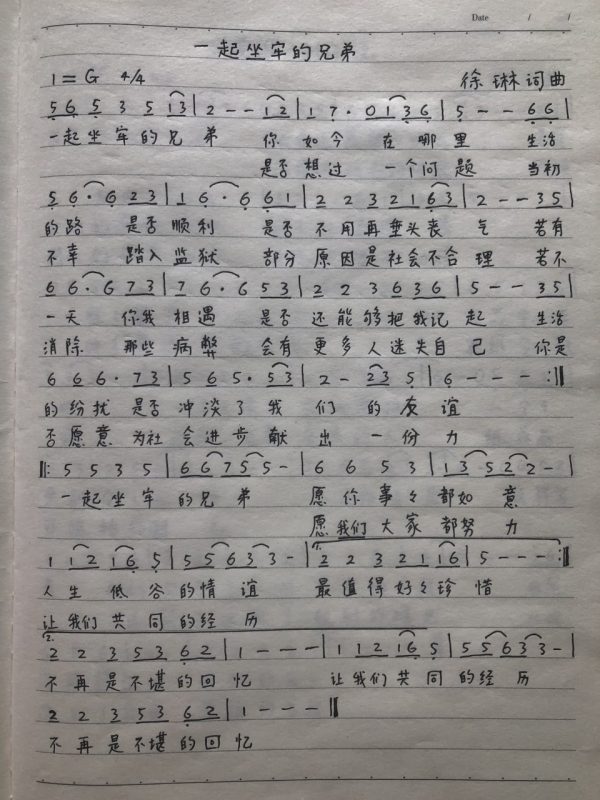 Date / /
一起坐牢的兄弟
1=G 4/4 徐琳词曲
5 6 5 3 5 1 3 | 2 - - 1 2 | 1 7 · 0 1 3 6 | 5 - - 6 6 |
一起坐牢的兄弟 你如今在哪里 生活
是否想过一个问题 当初
5 6 · 6 2 3 | 1 6 · 6 6 1 | 2 2 3 2 1 6 3 | 2 - - 3 5 |
的路 是否顺利 是否不用再垂头丧气 若有
不幸 踏入监狱 部分原因是社会不合理 若不
6 6 · 6 7 3 | 7 6 · 6 5 3 | 2 2 3 6 3 6 | 5 - - 3 5 |
一天 你我相遇 是否还能够把我记起 生活
消除 那些病弊 会有更多人迷失自己 你是
6 6 6 · 7 3 | 5 6 5 · 5 3 | 2 - 2 3 5 | 6 - - - :||
的纷扰是否冲淡了我们的友谊
否愿意为社会进步献出一份力
||: 5 5 3 5 | 6 6 7 5 5 - | 6 6 5 3 | 1 3 5 2 2 - |
一起坐牢的兄弟 愿你事々都如意
愿我们大家都努力
1 1 2 1 6 5 | 5 5 6 3 3 - | 1. 2 2 3 2 1 1 6 | 5 - - - :||
人生低谷的情谊 最值得好々珍惜
让我们共同的经历
2. 2 2 3 5 3 6 2 | 1 - - - | 1 1 2 1 6 5 | 5 5 6 3 3 - |
不再是不堪的回忆 让我们共同的经历
2 2 3 5 3 6 2 | 1 - - - ||
不再是不堪的回忆